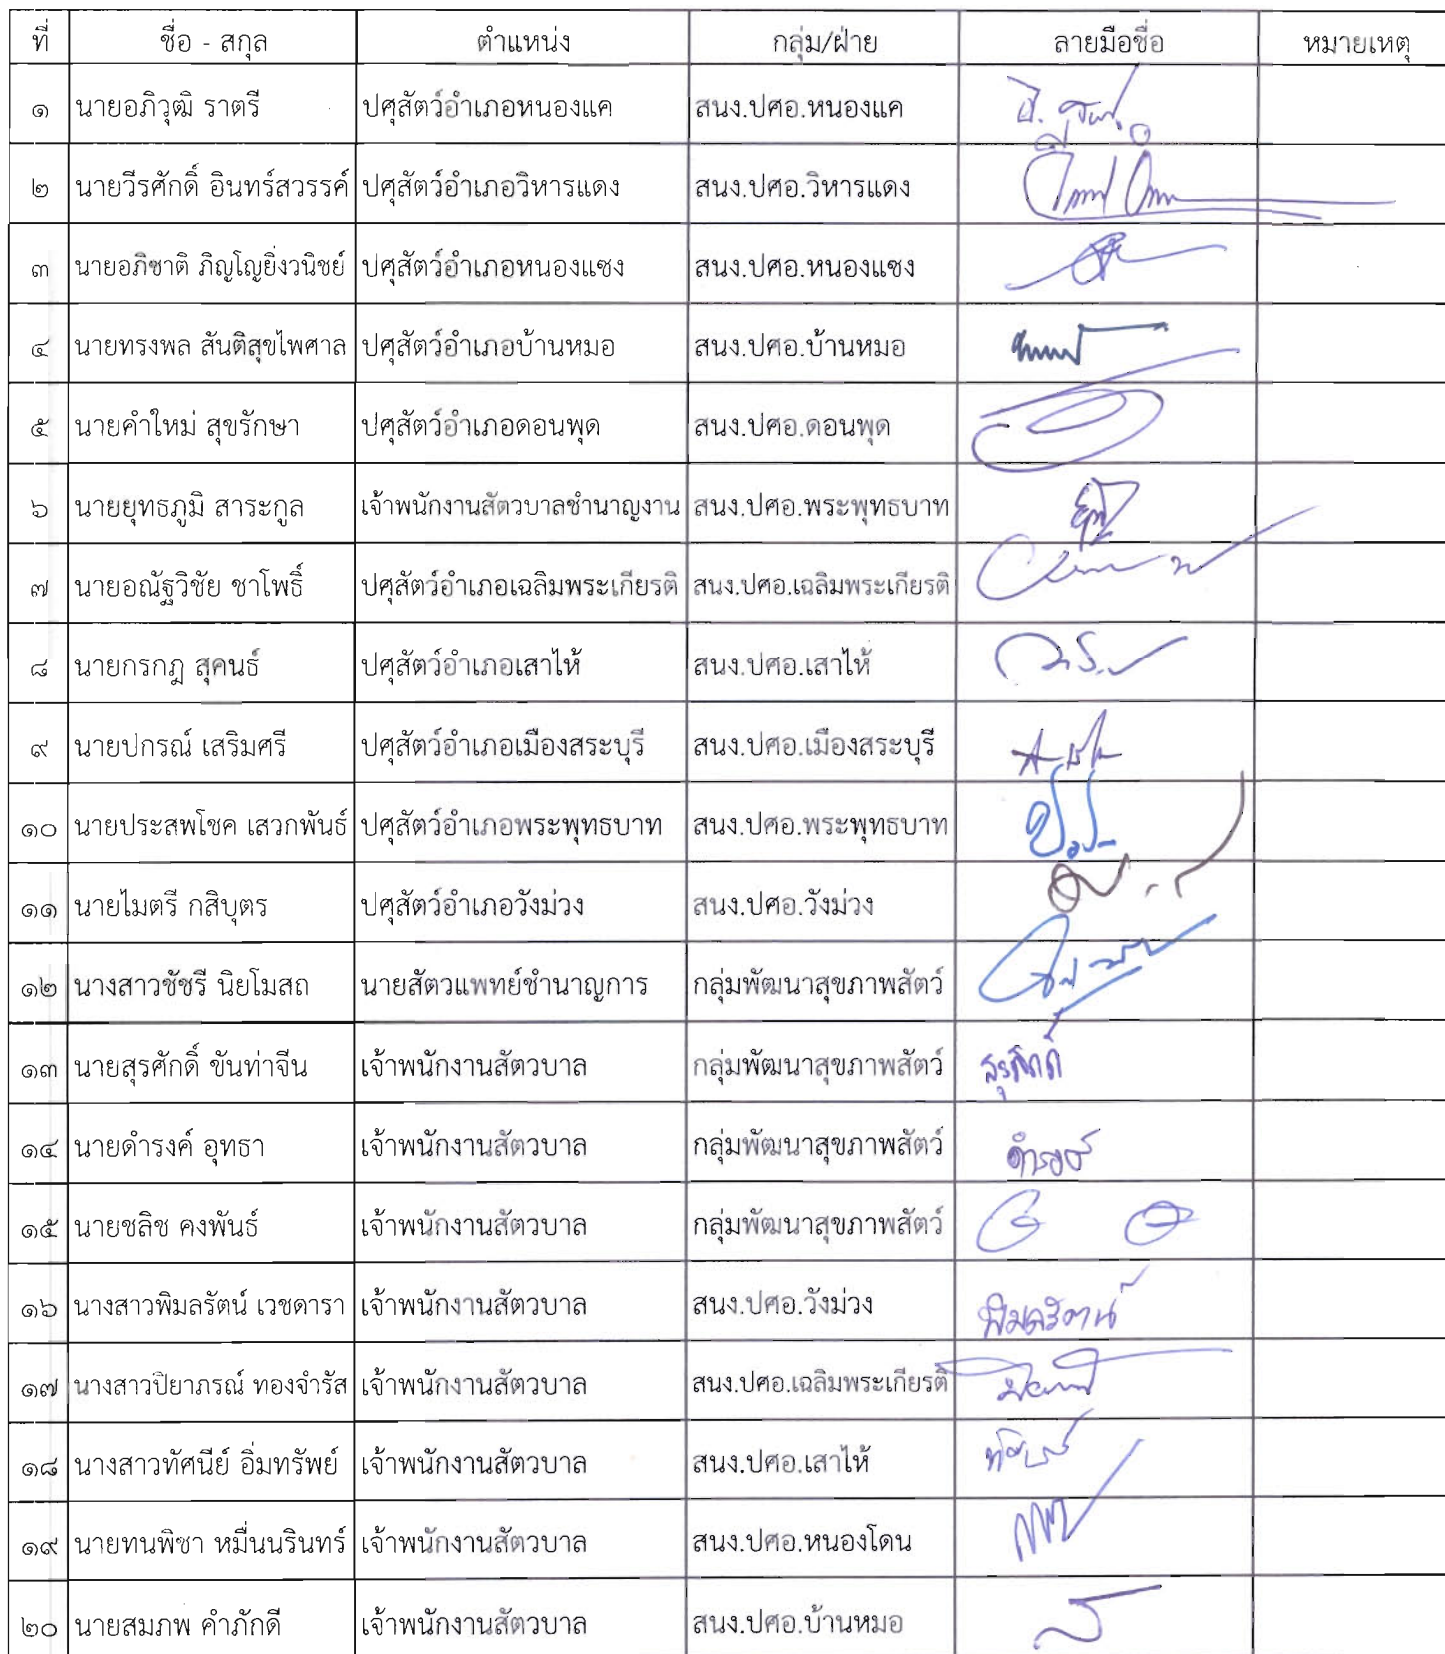 ที่ ชื่อ - สกุล ตำแหน่ง กลุ่ม/ฝ่าย ลายมือชื่อ หมายเหตุ
๑ นายอภิวุฒิ ราตรี ปศุสัตว์อำเภอหนองแค สนง.ปศอ.หนองแค
๒ นายวีรศักดิ์ อินทร์สวรรค์ ปศุสัตว์อำเภอวิหารแดง สนง.ปศอ.วิหารแดง
๓ นายอภิชาติ ภิญโญยิ่งวนิชย์ ปศุสัตว์อำเภอหนองแซง สนง.ปศอ.หนองแซง
๔ นายทรงพล สันติสุขไพศาล ปศุสัตว์อำเภอบ้านหมอ สนง.ปศอ.บ้านหมอ
๕ นายคำใหม่ สุขรักษา ปศุสัตว์อำเภอดอนพุด สนง.ปศอ.ดอนพุด
๖ นายยุทธภูมิ สาระกูล เจ้าพนักงานสัตวบาลชำนาญงาน สนง.ปศอ.พระพุทธบาท
๗ นายอณัฐวิชัย ชาโพธิ์ ปศุสัตว์อำเภอเฉลิมพระเกียรติ สนง.ปศอ.เฉลิมพระเกียรติ
๘ นายกรกฎ สุคนธ์ ปศุสัตว์อำเภอเสาไห้ สนง.ปศอ.เสาไห้
๙ นายปกรณ์ เสริมศรี ปศุสัตว์อำเภอเมืองสระบุรี สนง.ปศอ.เมืองสระบุรี
๑๐ นายประสพโชค เสวกพันธ์ ปศุสัตว์อำเภอพระพุทธบาท สนง.ปศอ.พระพุทธบาท
๑๑ นายไมตรี กสิบุตร ปศุสัตว์อำเภอวังม่วง สนง.ปศอ.วังม่วง
๑๒ นางสาวชัชรี นิยโมสถ นายสัตวแพทย์ชำนาญการ กลุ่มพัฒนาสุขภาพสัตว์
๑๓ นายสุรศักดิ์ ขันท่าจีน เจ้าพนักงานสัตวบาล กลุ่มพัฒนาสุขภาพสัตว์ สุรศักดิ์
๑๔ นายดำรงค์ อุทธา เจ้าพนักงานสัตวบาล กลุ่มพัฒนาสุขภาพสัตว์ ดำรงค์
๑๕ นายชลิช คงพันธ์ เจ้าพนักงานสัตวบาล กลุ่มพัฒนาสุขภาพสัตว์
๑๖ นางสาวพิมลรัตน์ เวชดารา เจ้าพนักงานสัตวบาล สนง.ปศอ.วังม่วง พิมลรัตน์
๑๗ นางสาวปิยาภรณ์ ทองจำรัส เจ้าพนักงานสัตวบาล สนง.ปศอ.เฉลิมพระเกียรติ
๑๘ นางสาวทัศนีย์ อิ่มทรัพย์ เจ้าพนักงานสัตวบาล สนง.ปศอ.เสาไห้
๑๙ นายทนพิชา หมื่นนรินทร์ เจ้าพนักงานสัตวบาล สนง.ปศอ.หนองโดน
๒๐ นายสมภพ คำภักดี เจ้าพนักงานสัตวบาล สนง.ปศอ.บ้านหมอ